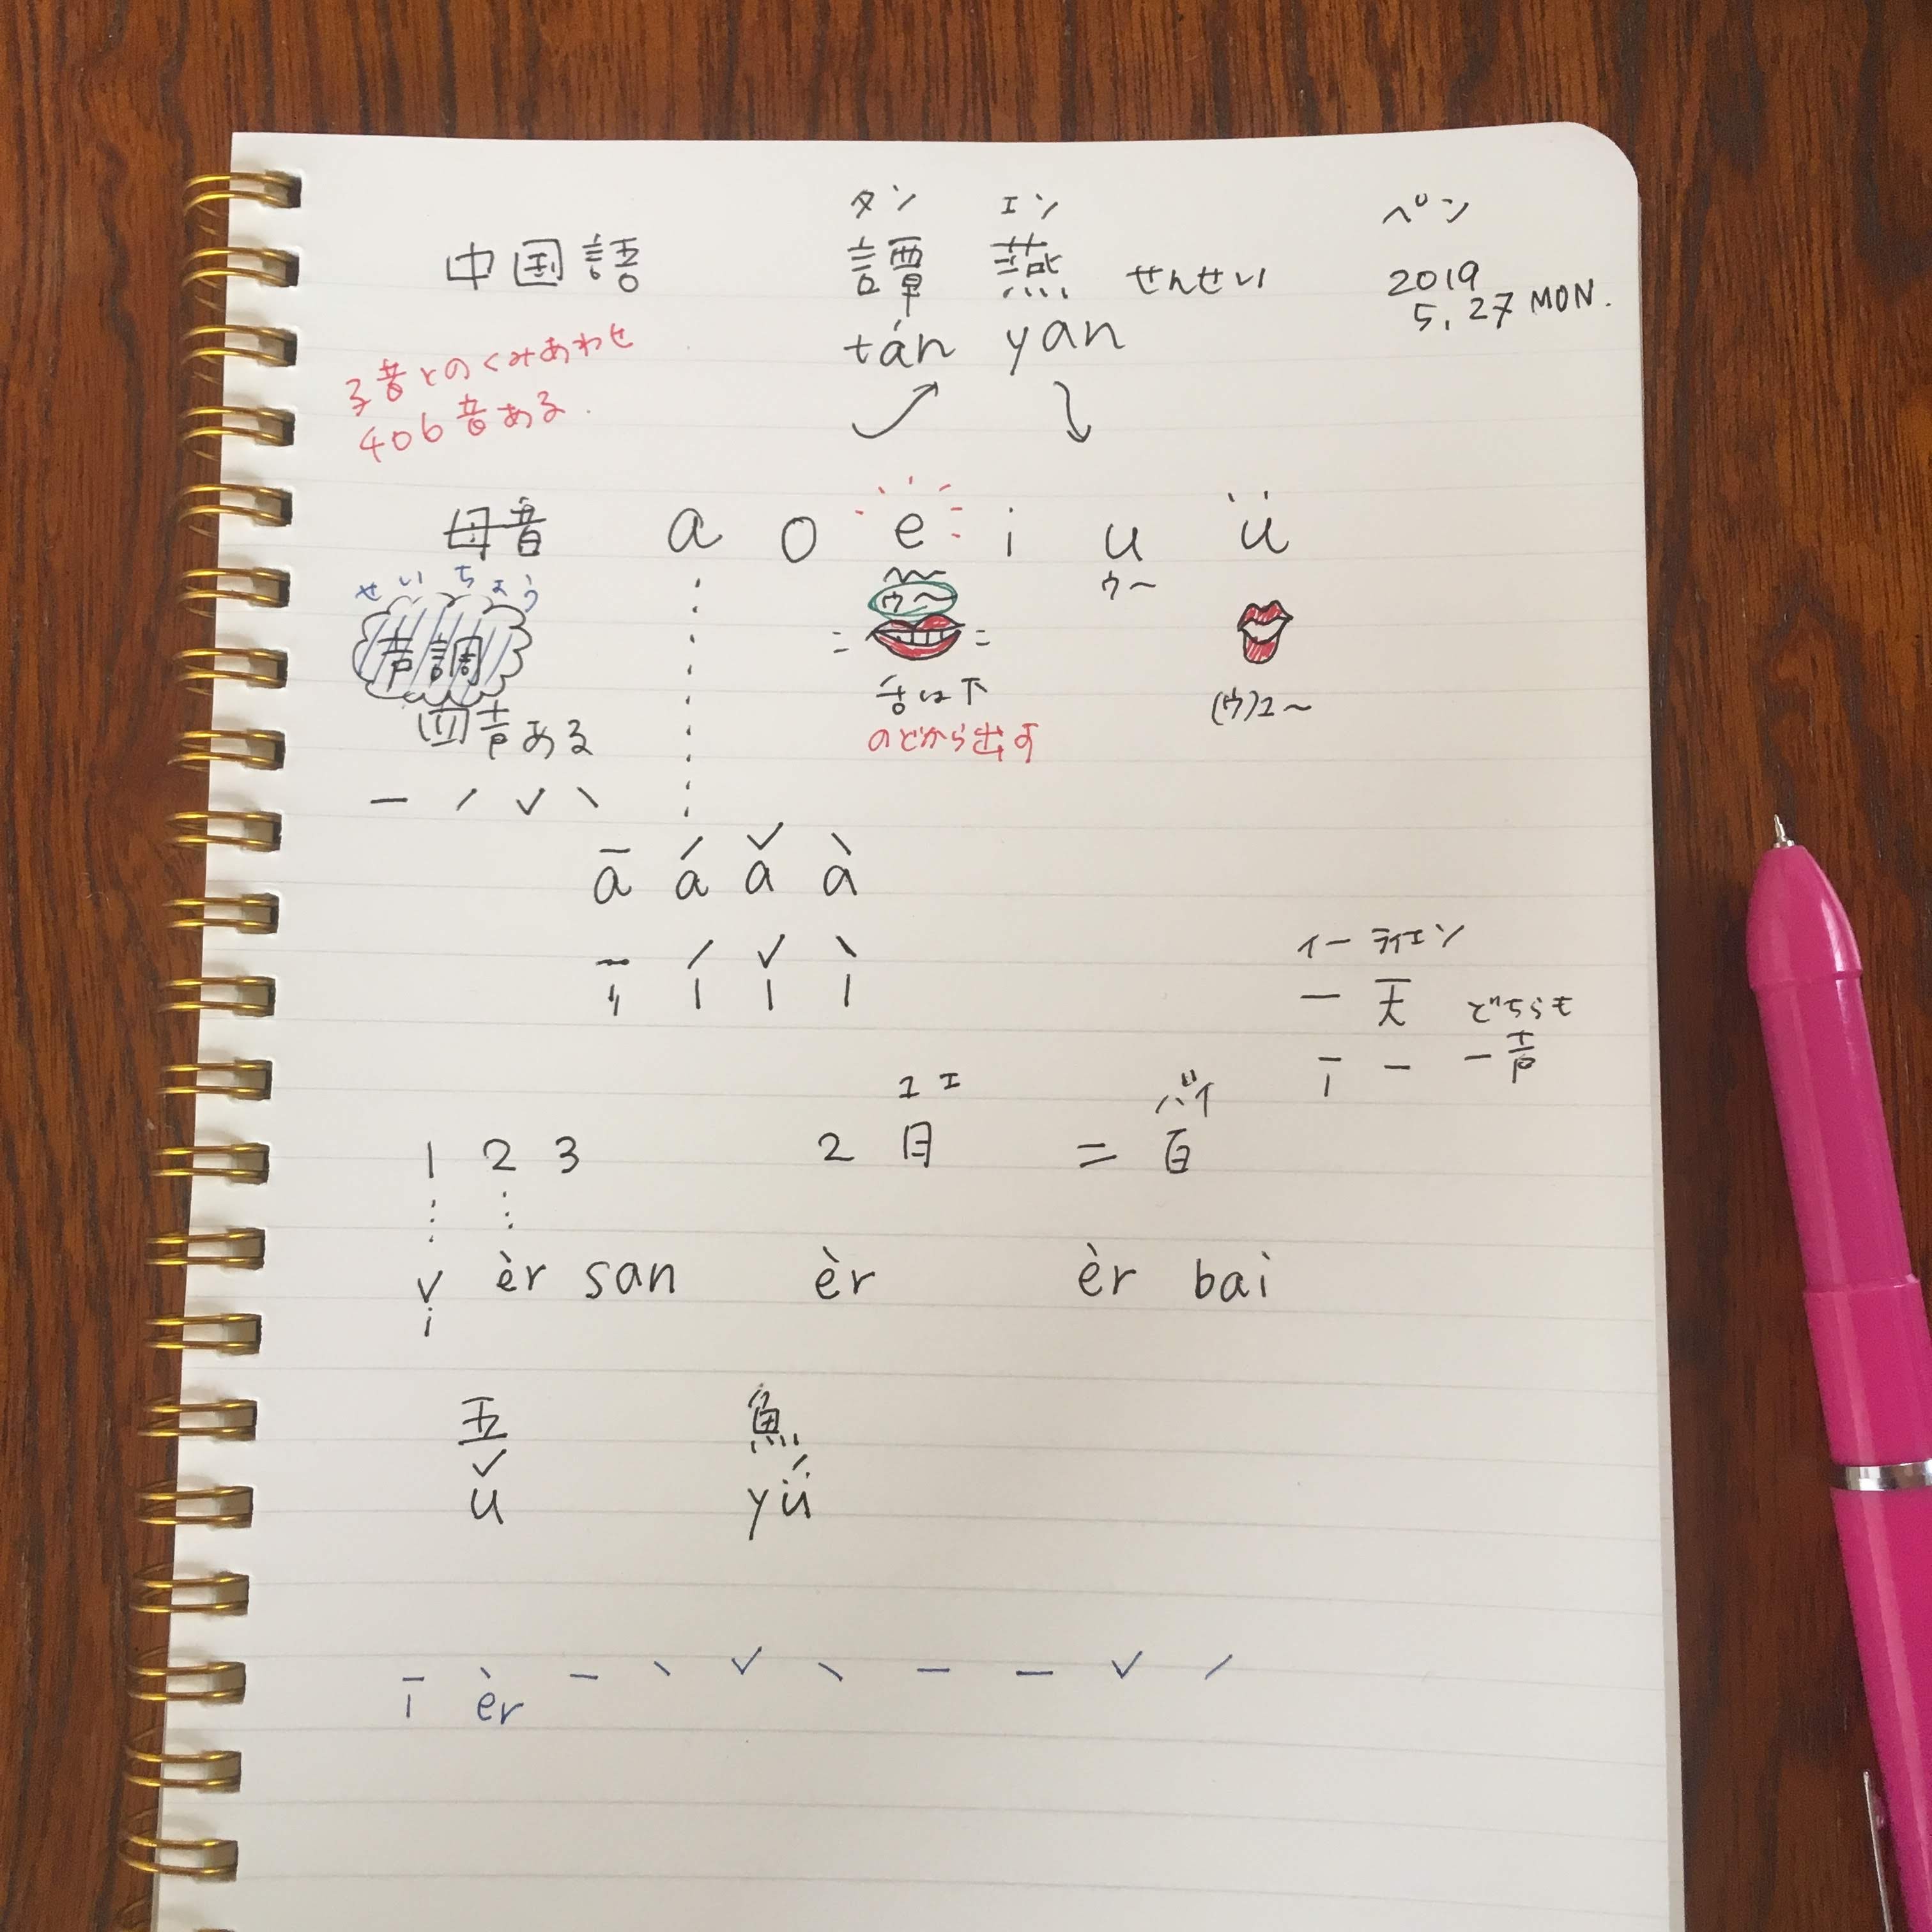 タン エン ペン
中国語 譚 燕 せんせい 2019
tán yan 5. 27 MON.
子音とのくみあわせ
406音ある.
母音 a o e i u ü
ウ〜
せいちょう
ウ〜
声調
舌は下 (ウ)ユ〜
四声ある のどから出す
ー ˊ ˇ ˋ
ā á ǎ à
ī í ǐ ì
イー ティエン
一 天 どちらも
ī ー 一声
ユエ バイ
1 2 3 2月 二百
ǐ èr san èr èr bai
五 魚
ǔ yǘ
ī èr ー ˋ ˇ ˋ ー ー ˇ ˊ